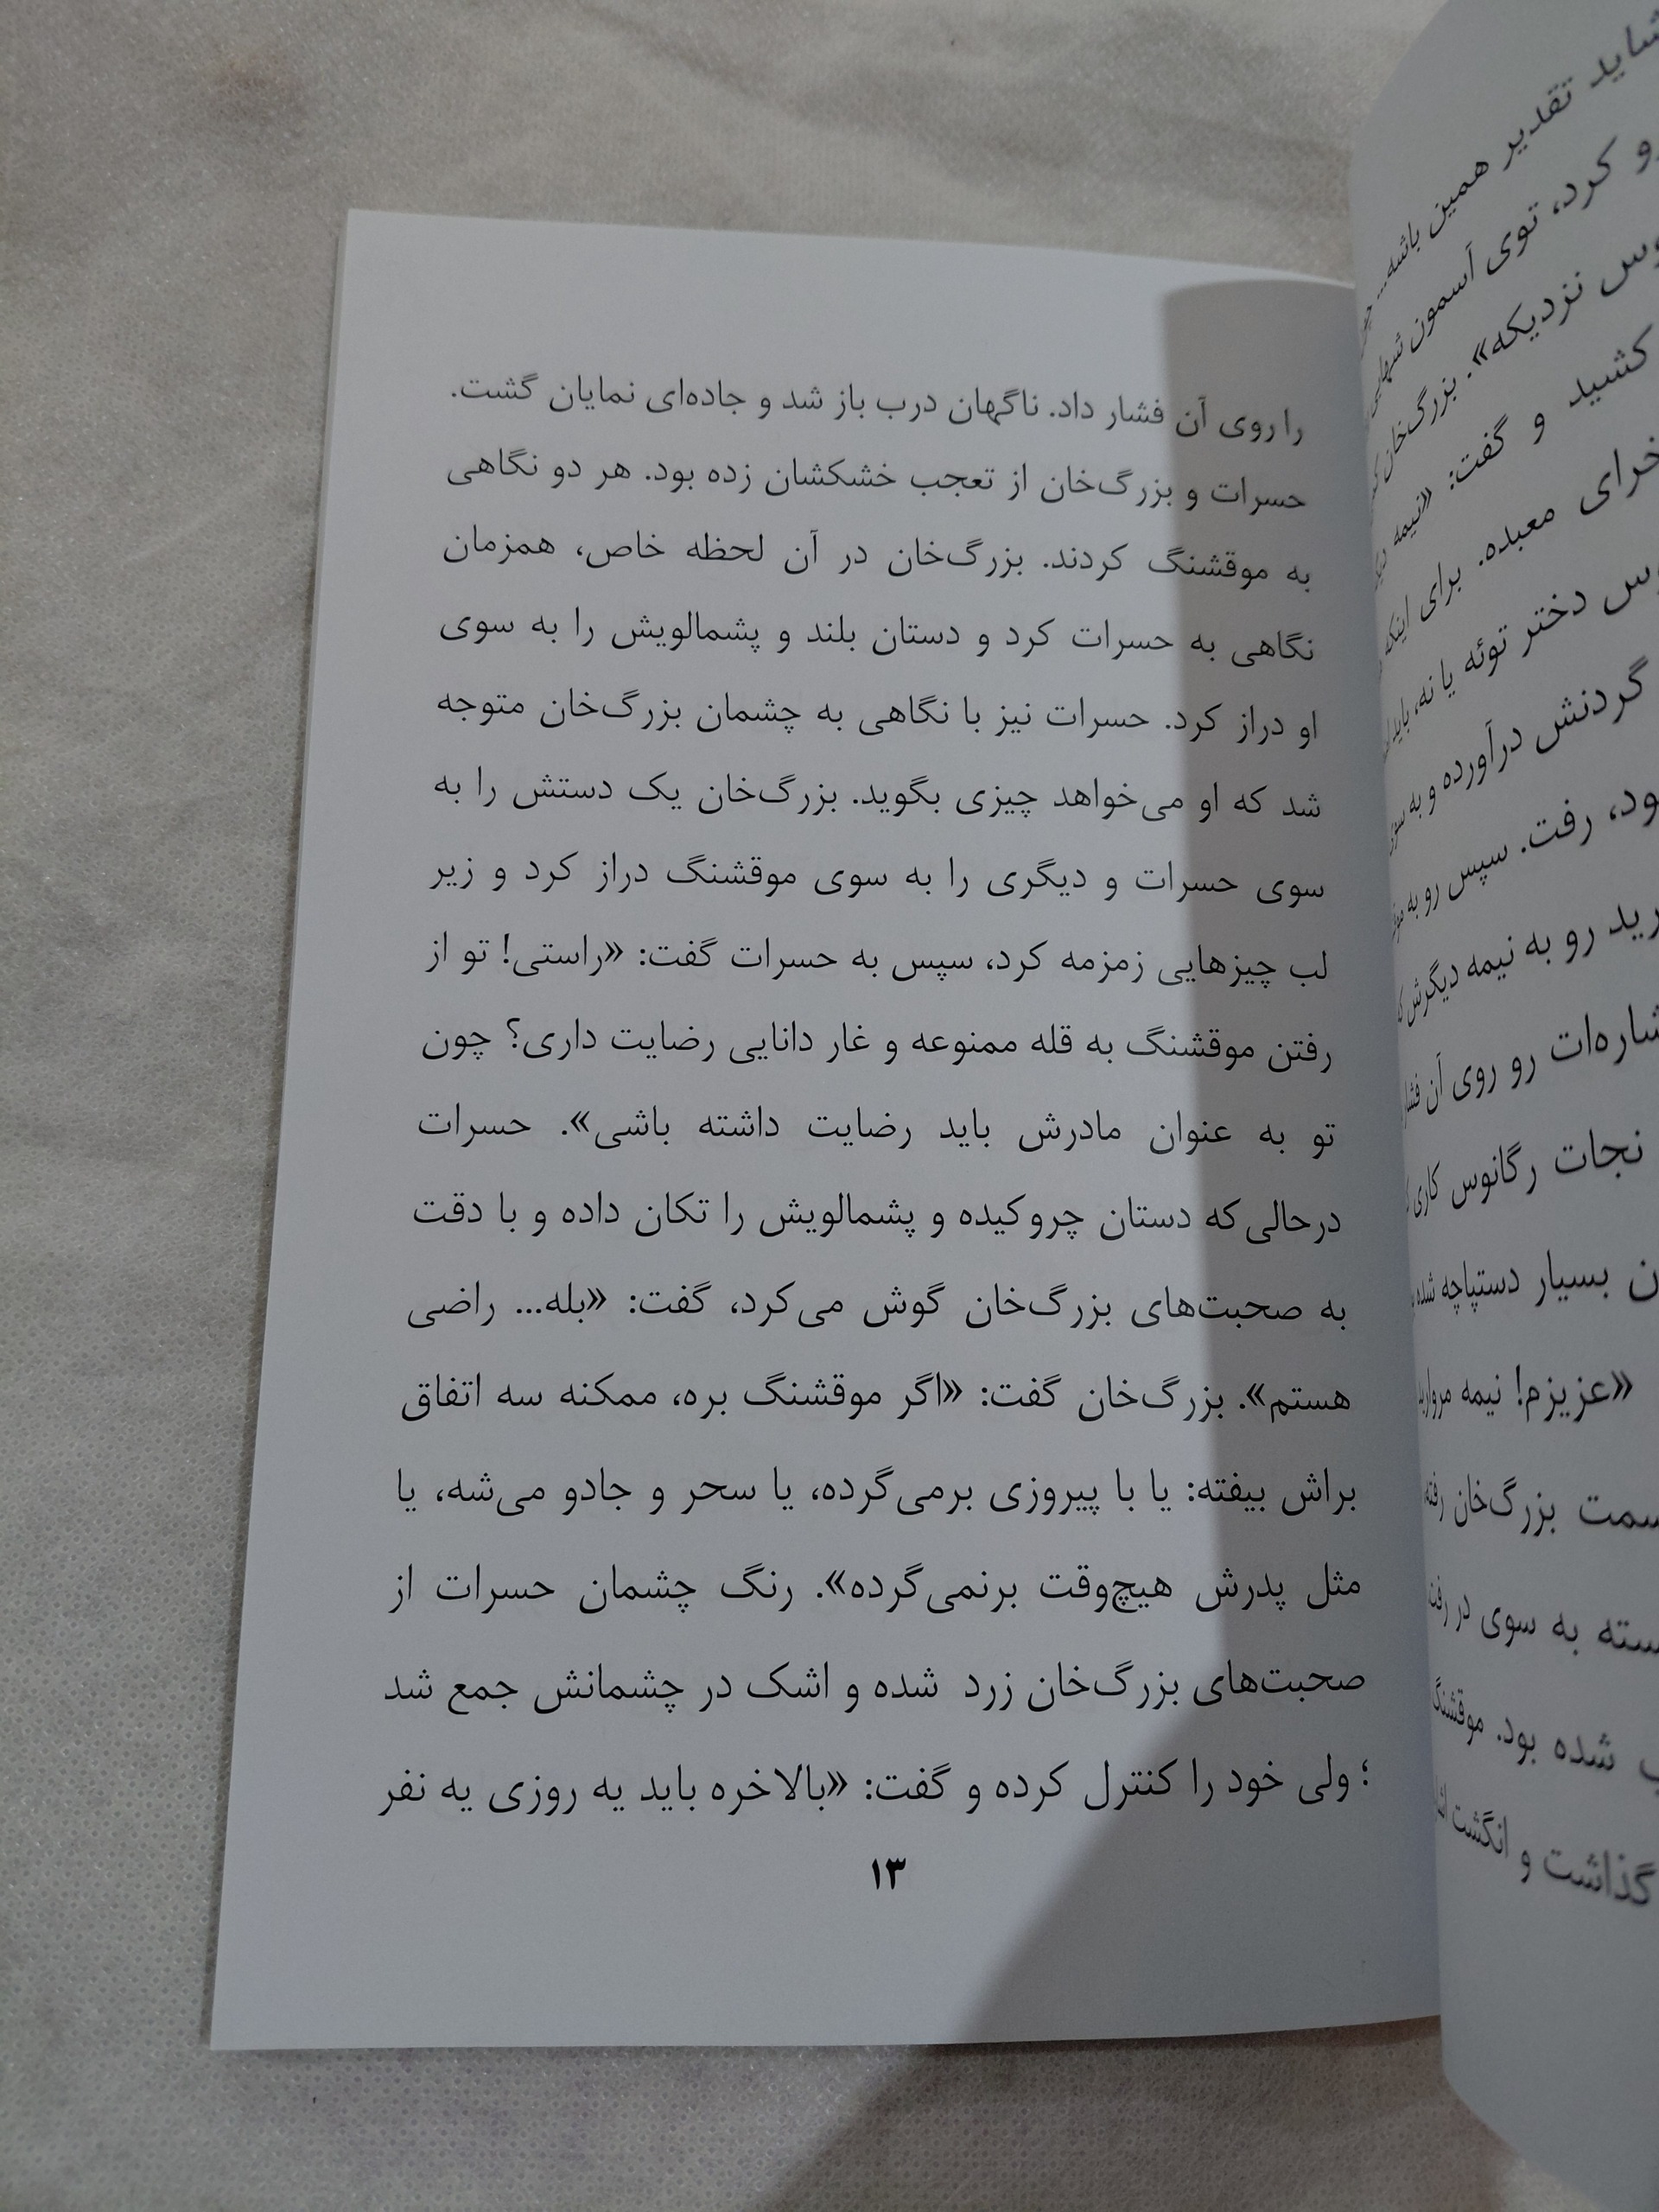 را روی آن فشار داد. ناگهان درب باز شد و جاده‌ای نمایان گشت.
حسرات و بزرگ‌خان از تعجب خشکشان زده بود. هر دو نگاهی
به موقشنگ کردند. بزرگ‌خان در آن لحظه خاص، همزمان
نگاهی به حسرات کرد و دستان بلند و پشمالویش را به سوی
او دراز کرد. حسرات نیز با نگاهی به چشمان بزرگ‌خان متوجه
شد که او می‌خواهد چیزی بگوید. بزرگ‌خان یک دستش را به
سوی حسرات و دیگری را به سوی موقشنگ دراز کرد و زیر
لب چیزهایی زمزمه کرد، سپس به حسرات گفت: «راستی! تو از
رفتن موقشنگ به قله ممنوعه و غار دانایی رضایت داری؟ چون
تو به عنوان مادرش باید رضایت داشته باشی». حسرات
درحالی‌که دستان چروکیده و پشمالویش را تکان داده و با دقت
به صحبت‌های بزرگ‌خان گوش می‌کرد، گفت: «بله... راضی
هستم». بزرگ‌خان گفت: «اگر موقشنگ بره، ممکنه سه اتفاق
براش بیفته: یا با پیروزی برمی‌گرده، یا سحر و جادو می‌شه، یا
مثل پدرش هیچ‌وقت برنمی‌گرده». رنگ چشمان حسرات از
صحبت‌های بزرگ‌خان زرد شده و اشک در چشمانش جمع شد
؛ ولی خود را کنترل کرده و گفت: «بالاخره باید یه روزی یه نفر
۱۳
شاید تقدیر همین باشه...
رو کرد، توی آسمون
نزدیکه». بزرگ‌خان
کشید و گفت: «نیمه
معبده. برای اینکه
دختر توئه یا نه، باید
گردنش درآورده و به سوی
رفت. سپس رو به
رو به نیمه دیگرش
رو روی آن
نجات رگانوس کاری
بسیار دستپاچه شده
«عزیزم! نیمه مروارید
بزرگ‌خان رفته
به سوی در
شده بود. موقشنگ
گذاشت و انگشت